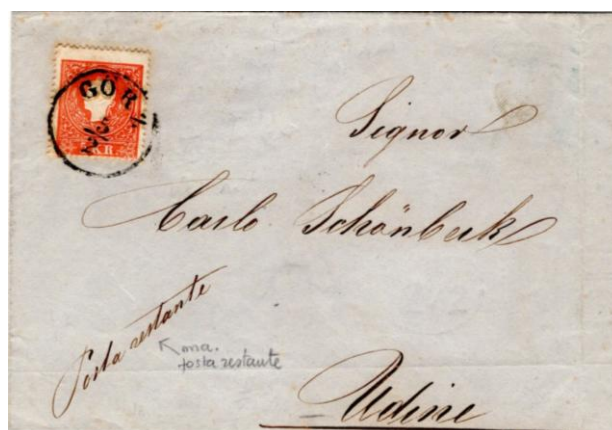 GÖR
KR
Signor
Carlo Schönbeck
Posta restante
ma.
posta restante
Udine